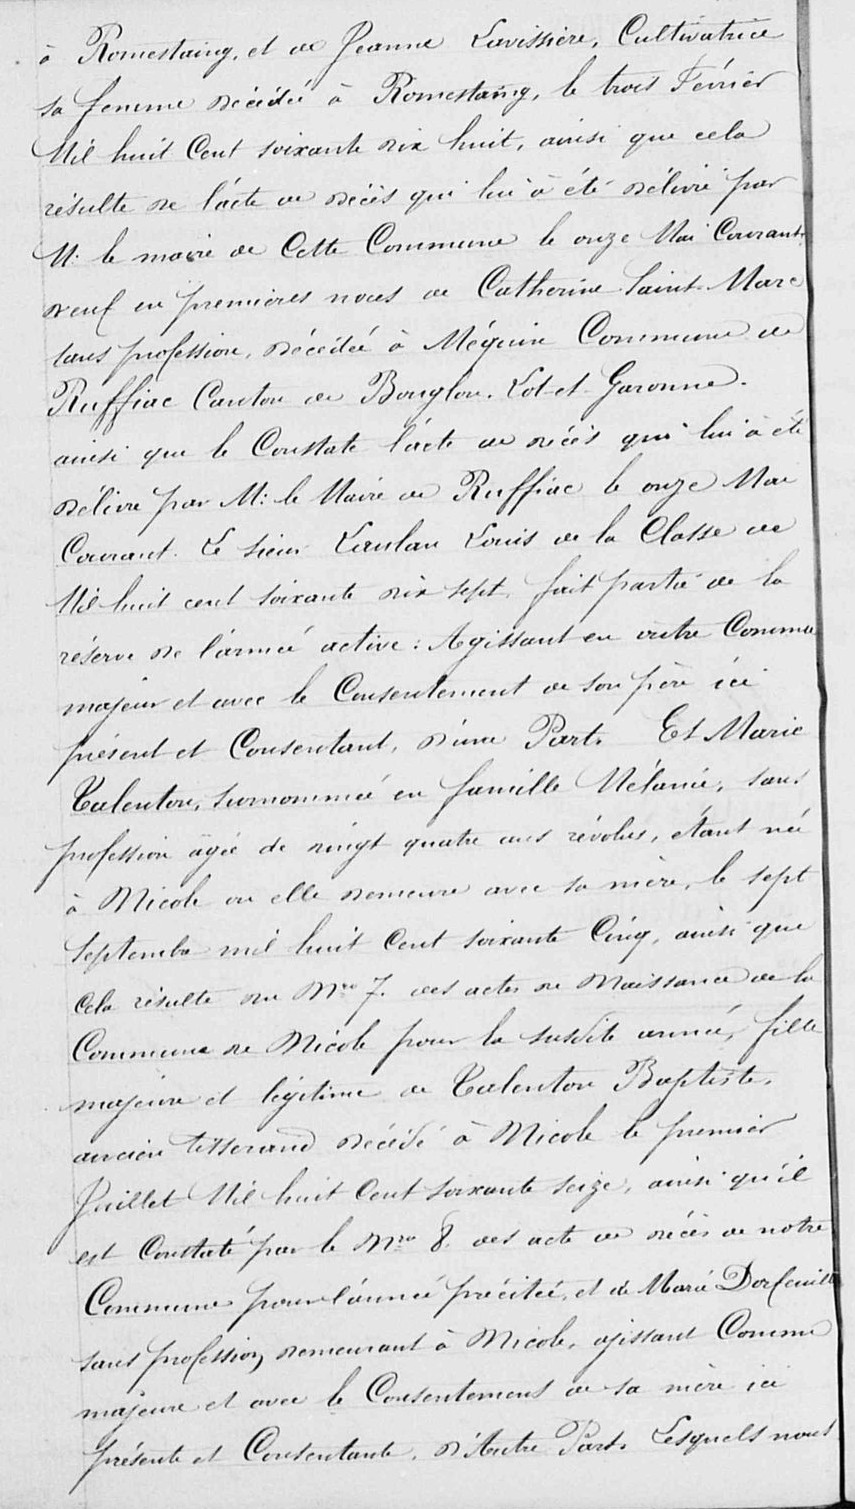 à Romestaing, et de Jeanne Lavissière, Cultivatrice
sa femme décédée à Romestaing, le trois Février
Mil huit Cent soixante dix huit, ainsi que cela
résulte de l'acte de décès qui lui à été délivré par
M. le maire de Cette Commune le onze Mai Courant,
veuf en premières noces de Catherine Saint-Marc
sans profession, décédée à Méguin Commune de
Ruffiac Canton de Bouglon. Lot-et-Garonne.
ainsi que le Constate l'acte de décès qui lui à été
délivré par M. le Maire de Ruffiac le onze Mai
Courant. Le sieur Laulan Louis de la Classe de
Mil huit cent soixante dix sept, fait partie de la
réserve de l'armée active: Agissant en outre Comme
majeur et avec le Consentement de son père ici
présent et Consentant, d'une Part. Et Marie
Talenton, surnommée en famille Mélanie, sans
profession âgée de vingt quatre ans révolus, étant née
à Nicole ou elle demeure avec sa mère, le sept
Septembre mil huit Cent soixante Cinq, ainsi que
cela résulte du Nro 7. des actes de Naissance de la
Commune de Nicole pour la susdite année, fille
majeure et légitime de Talenton Baptiste,
ancien tisserand décédé à Nicole le premier
Juillet Mil huit Cent soixante seize, ainsi qu'il
est Constaté par le Nro 8. des acte de décès de notre
Commune pour l'année précitée, et de Marie Dorfeuille
sans profession, demeurant à Nicole, agissant Comme
majeure et avec le Consentement de sa mère ici
présente et Consentante. d'Autre Part. Lesquels nous